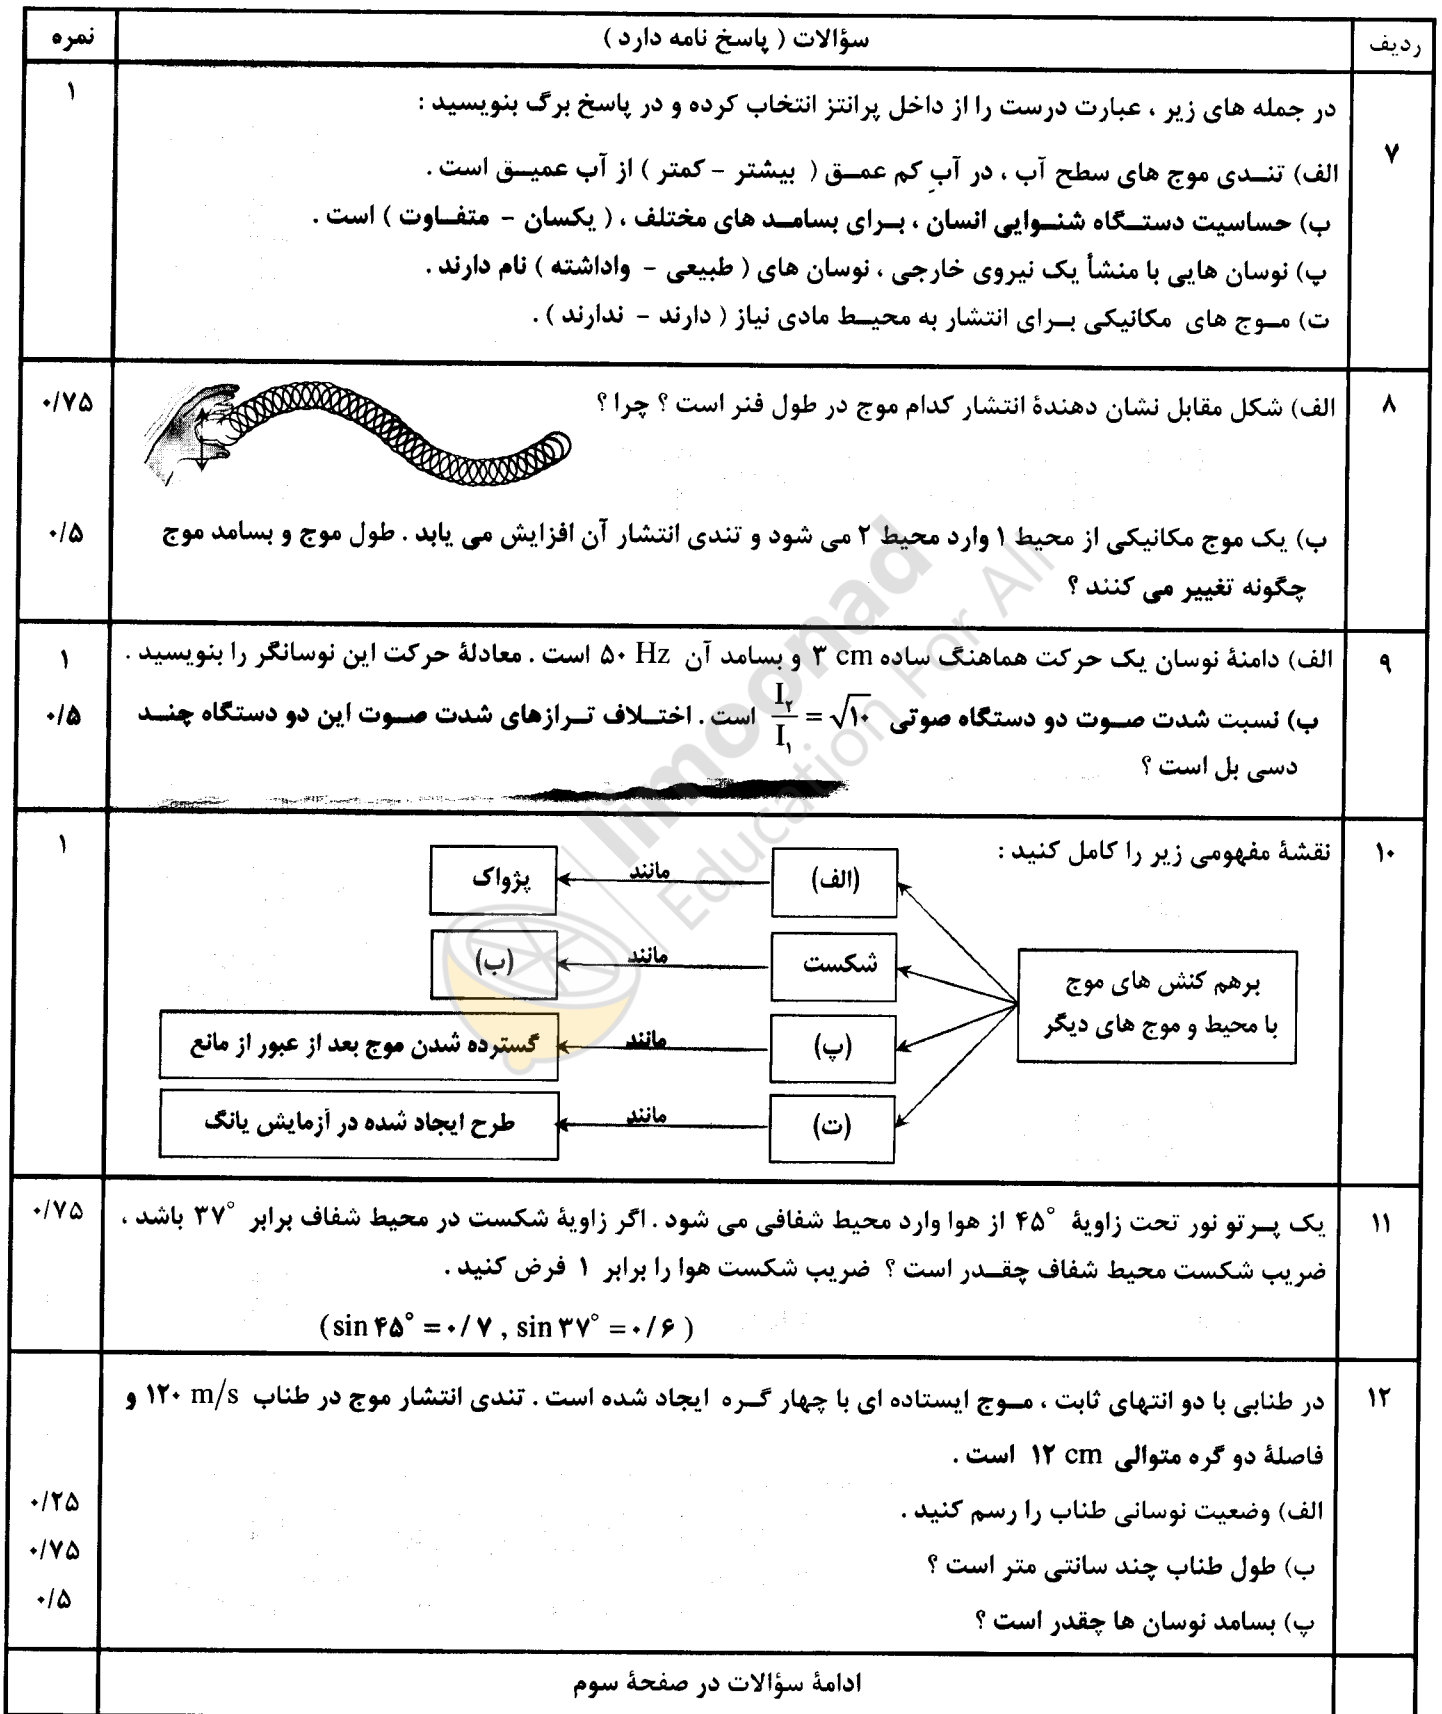 ردیف سؤالات ( پاسخ نامه دارد ) نمره
۷ در جمله های زیر ، عبارت درست را از داخل پرانتز انتخاب کرده و در پاسخ برگ بنویسید : ۱
الف) تنــدی موج های سطح آب ، در آبِ کم عمــق ( بیشتر - کمتر ) از آب عمیــق است .
ب) حساسیت دستــگاه شنــوایی انسان ، بــرای بسامــد های مختلف ، ( یکسان - متفــاوت ) است .
پ) نوسان هایی با منشأ یک نیروی خارجی ، نوسان های ( طبیعی - واداشته ) نام دارند .
ت) مــوج های مکانیکی بــرای انتشار به محیــط مادی نیاز ( دارند - ندارند ) .
۸ الف) شکل مقابل نشان دهندهٔ انتشار کدام موج در طول فنر است ؟ چرا ؟ ۰/۷۵
ب) یک موج مکانیکی از محیط ۱ وارد محیط ۲ می شود و تندی انتشار آن افزایش می یابد . طول موج و بسامد موج ۰/۵
چگونه تغییر می کنند ؟
۹ الف) دامنهٔ نوسان یک حرکت هماهنگ ساده ۳ cm و بسامد آن ۵۰ Hz است . معادلهٔ حرکت این نوسانگر را بنویسید . ۱
ب) نسبت شدت صــوت دو دستگاه صوتی I₂/I₁ = √۱۰ است . اختــلاف تــرازهای شدت صــوت این دو دستگاه چنــد ۰/۵
دسی بل است ؟
۱۰ نقشهٔ مفهومی زیر را کامل کنید : ۱
(الف) مانند پژواک
شکست مانند (ب)
برهم کنش های موج
با محیط و موج های دیگر
(پ) مانند گسترده شدن موج بعد از عبور از مانع
(ت) مانند طرح ایجاد شده در آزمایش یانگ
۱۱ یک پــرتو نور تحت زاویهٔ ۴۵° از هوا وارد محیط شفافی می شود . اگر زاویهٔ شکست در محیط شفاف برابر ۳۷° باشد ، ۰/۷۵
ضریب شکست محیط شفاف چقــدر است ؟ ضریب شکست هوا را برابر ۱ فرض کنید .
(sin ۴۵° = ۰/۷ , sin ۳۷° = ۰/۶ )
۱۲ در طنابی با دو انتهای ثابت ، مــوج ایستاده ای با چهار گــره ایجاد شده است . تندی انتشار موج در طناب ۱۲۰ m/s و
فاصلهٔ دو گره متوالی ۱۲ cm است .
الف) وضعیت نوسانی طناب را رسم کنید . ۰/۲۵
ب) طول طناب چند سانتی متر است ؟ ۰/۷۵
پ) بسامد نوسان ها چقدر است ؟ ۰/۵
ادامهٔ سؤالات در صفحهٔ سوم
limoonad
Education For All